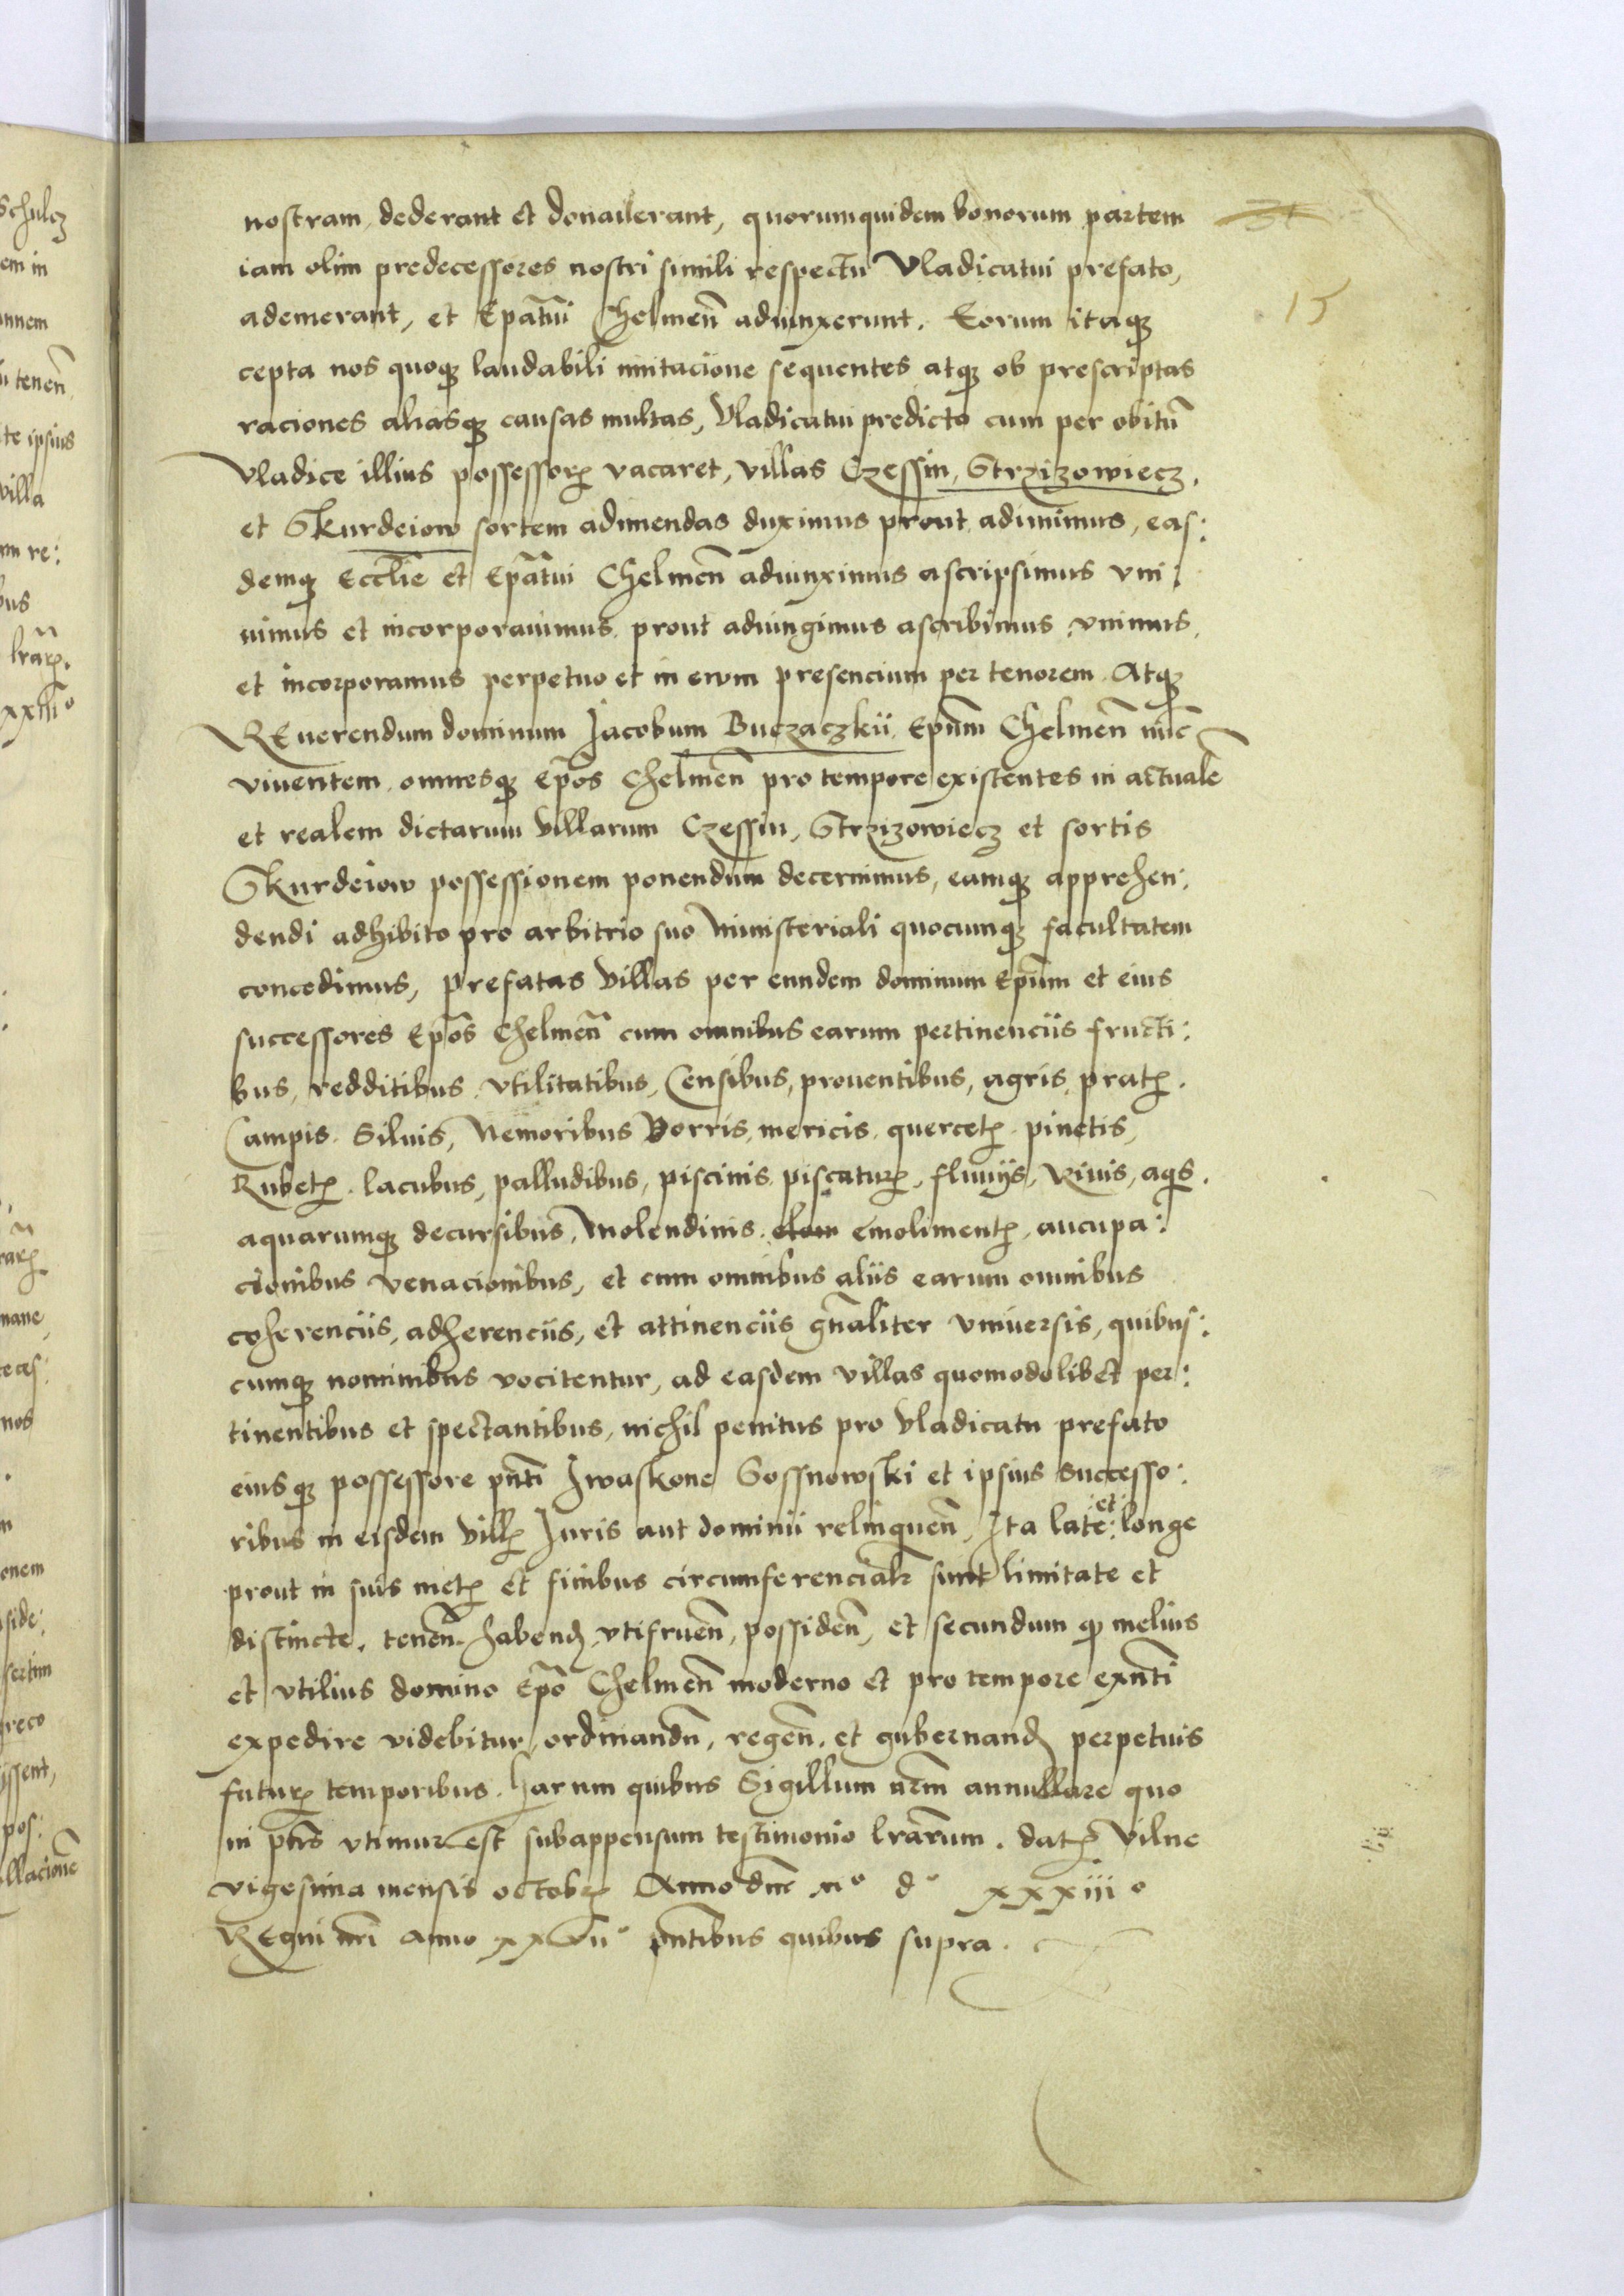 nostram, dederant et donauerant, quorumquidem bonorum partem
15
iam olim predecessores nostri simili respectu Vladicatui prefato,
ademerant, et Epatui Chelmen adiunxerunt. Eorum itaqꝫ
cepta nos quoqꝫ laudabili imitacione sequentes atqꝫ ob prescriptas
raciones aliasqꝫ causas multas, Vladicatui predicto cum per obitu̅
Vladice illius possessorꝭ vacaret, villas Czessin, Strzizowiecz,
et Skurdeiow sortem adimendas duximus prout adimimus, eas:
demqꝫ Eccl̅ie et Ep̅atui Chelmen̅ adiunximus ascripsimus vni:
uimus et incorporauimus, prout adiungimus ascribimus vnimus,
et incorporamus perpetuo et in ewm presencium per tenorem. Atqꝫ
REuerendum dominum Jacobum Buczaczkii Ep̅um Chelmen̅ nu̅c
viuentem, omnesqꝫ Ep̅os Chelmen̅ pro tempore existentes in actuale̅
et realem dictarum villarum Czessin, Strzizowiecz et sortis
Skurdeiow possessionem ponendum decernimus, eamqꝫ apprehen:
dendi adhibito pro arbitrio suo ministeriali quocumqꝫ facultatem
concedimus, Prefatas villas per eundem dominum Ep̅um et eius
successores Ep̅os Chelmen̅ cum omnibus earum pertinenciis fructi:
bus, redditibus, vtilitatibus, Censibus, prouentibus, agris, pratꝭ.
Campis, Siluis, Nemoribus Borris, mericis, quercetꝭ, pinetis,
Rubetꝭ, lacubus, palludibus, piscinis, piscaturꝭ, fluuijs, Riuis, aqs̅.
aquarumqꝫ decursibus, Molendinis, emolimentꝭ, aucupa:
cionibus venacionibus, et cum omnibus aliis earum omnibus
coherenciis, adherenciis, et attinenciis gn̅aliter vniuersis, quibus:
cumqꝫ nominibus vocitentur, ad easdem villas quomodolibet per:
tinentibus et spectantibus, nichil penitus pro Vladicatu prefato
eiusqꝫ possessore pn̅ti Iwaskone Sossnowski et ipsius successo:
ribus in eisdem villꝭ Juris aut dominii relinquen̅, Ita late et longe
prout in suis metꝭ et finibus circumferencialꝭ sunt limitate et
distincte, tenen̅. habenđ vtifruen̅, possiden̅, et secundum qꝫ melius
et vtilius domino Ep̅o Chelmen̅ moderno et pro tempore exn̅ti
expedire videbitur, ordinandn̅, regen̅, et gubernanđ perpetuis
futurꝭ temporibus. Harum quibus Sigillum nr̅m annullare quo
in pt̅is vtimur est subappensum testimonio lr̅arum. Datꝭ Vilne
vigesima mensis octobrꝭ Anno dn̅i Mº dº xxxiiiº
REgni nr̅i anno xxviiº pn̅tibus quibus supra.